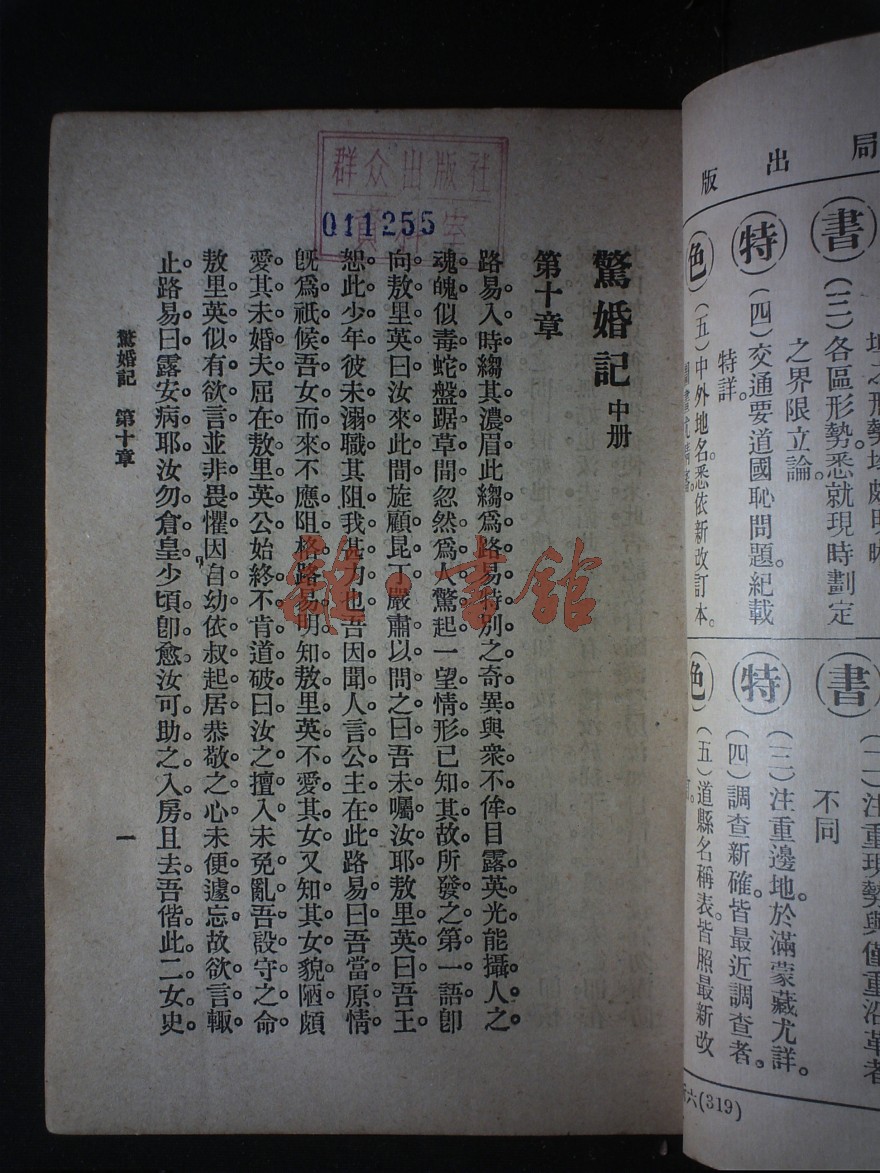 局出版
書
特
色
(三)各區形勢。悉就現時劃定
之界限立論。
(四)交通要道國恥問題。紀載
特詳。
(五)中外地名。悉依新改訂本。
書
特
色
不同
(三)注重邊地。於滿蒙藏尤詳。
(四)調查新確。皆最近調查者。
(五)道縣名稱表。皆照最新改
六(319)
群众出版社
011255
驚婚記 中册
第十章
路易入時。縐其濃眉。此縐爲路易特別之奇異。與衆不侔。目露英光。能攝人之
魂魄。似毒蛇盤踞草間。忽然爲人驚起。一望情形。已知其故。所發之第一語。卽
向敖里英曰。汝來此間。旋顧昆丁。嚴肅以問之曰。吾未囑汝耶。敖里英曰。吾王
恕此少年。彼未溺職。其阻我甚力也。吾因聞人言公主在此。路易曰。吾當原情。
旣爲祇候吾女而來。不應阻格。路易明知敖里英不愛其女。又知其女貌陋。頗
愛其未婚夫。屈在敖里英。公始終不肯道破。曰。汝之擅入。未免亂吾設守之命。
敖里英似有欲言。並非畏懼。因自幼依叔起居。恭敬之心。未便遽忘。故欲言輒
止。路易曰。露安病耶。汝勿倉皇。少頃卽愈。汝可助之入房。且去。吾偕此二女史
驚婚記 第十章
一